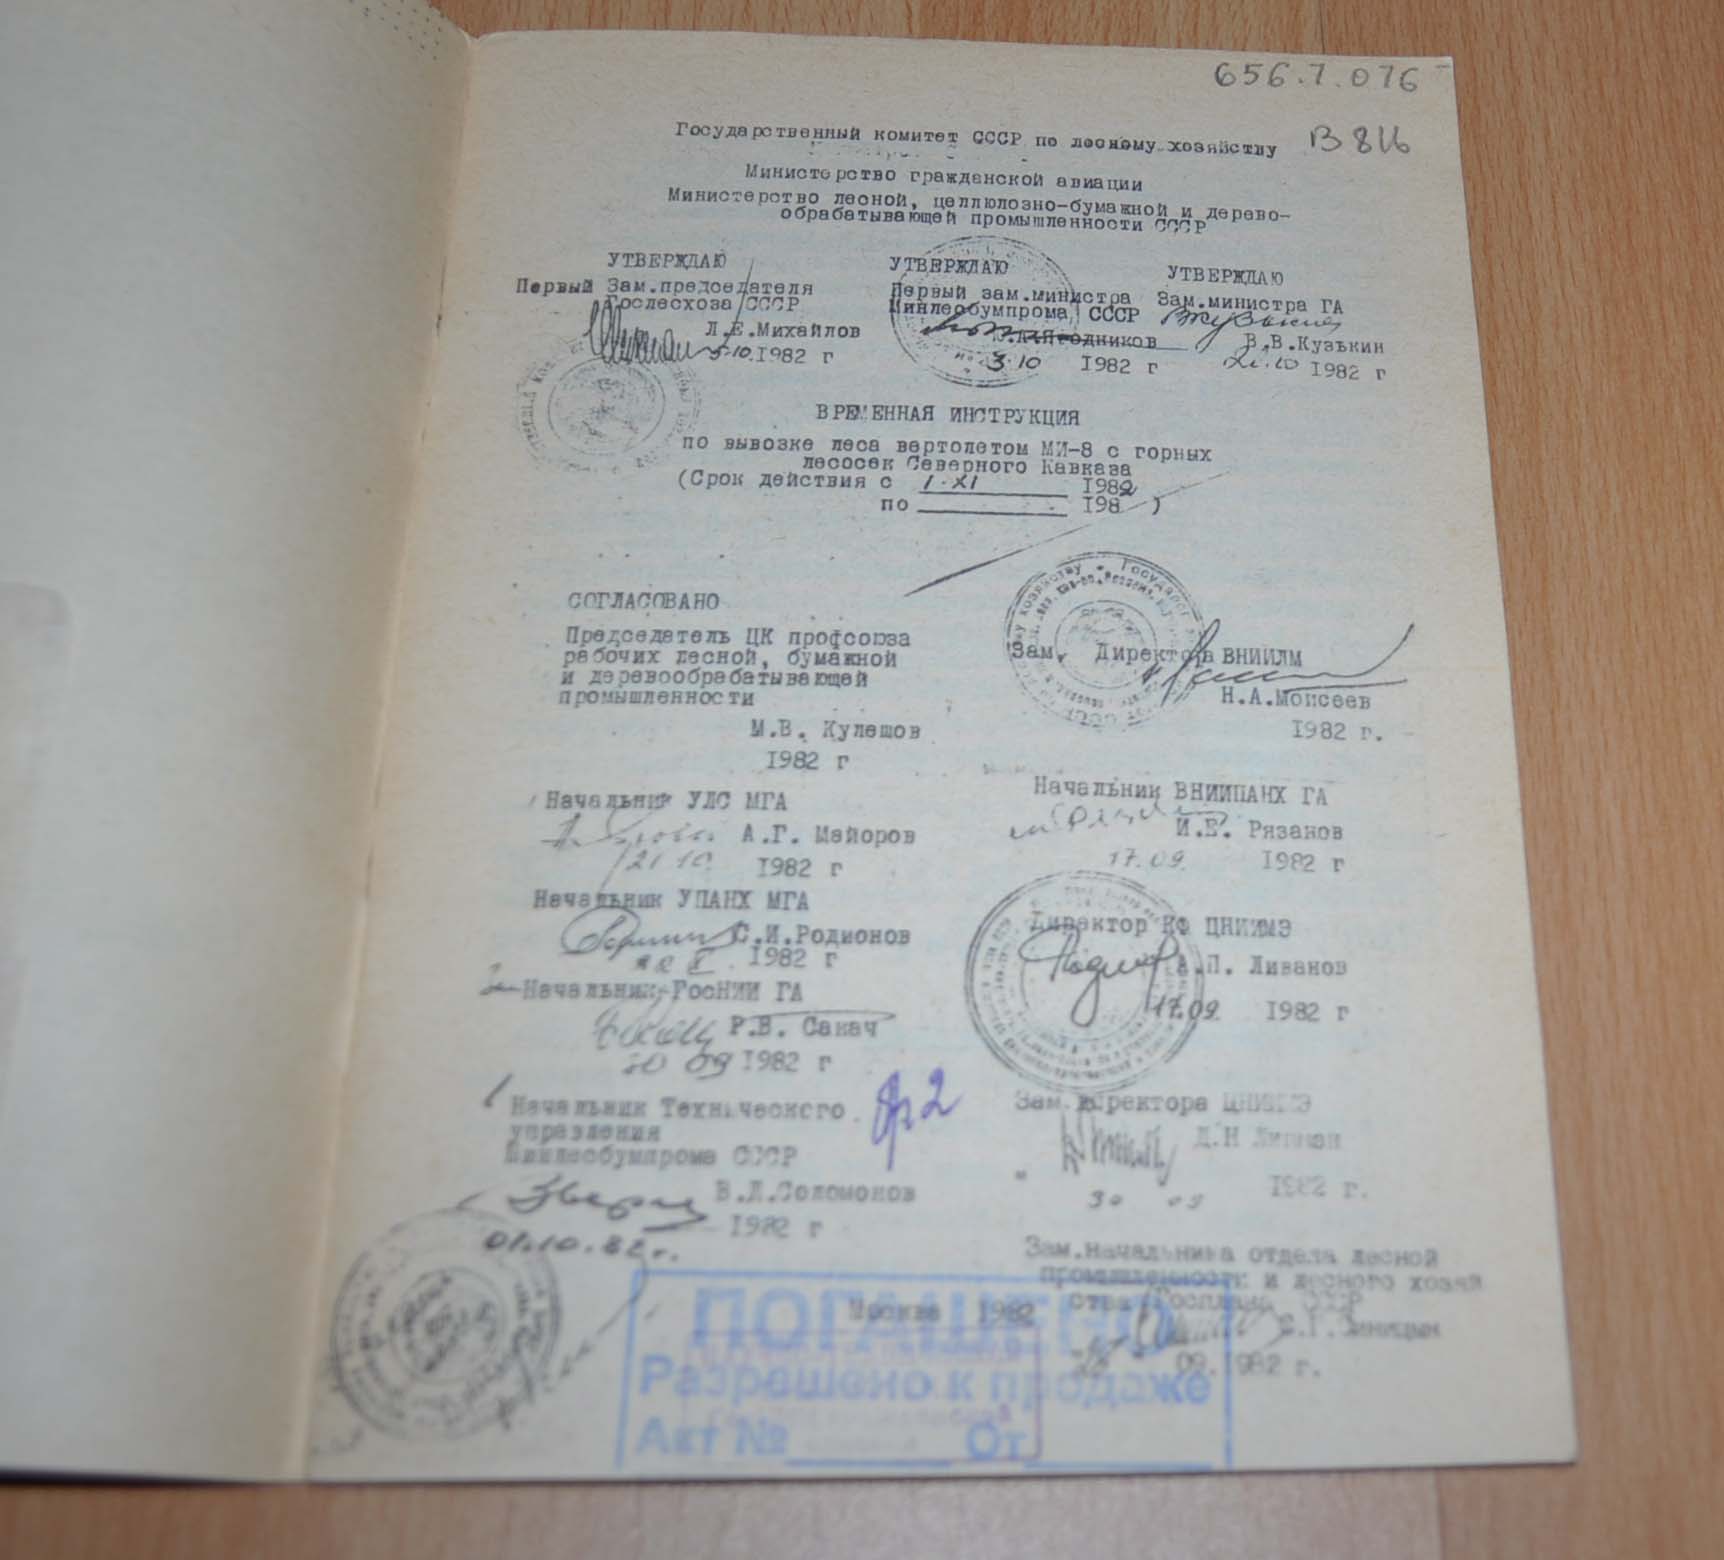 656.7.076
Государственный комитет СССР по лесному хозяйству
В 816
Министерство гражданской авиации
Министерство лесной, целлюлозно-бумажной и дерево-
обрабатывающей промышленности СССР
УТВЕРЖДАЮ
Первый Зам.председателя
Гослесхоза СССР
Л.Е.Михайлов
5.10.1982 г
УТВЕРЖДАЮ
Первый зам.министра
Минлесбумпрома СССР
3.10 1982 г
УТВЕРЖДАЮ
Зам.министра ГА
В.В.Кузькин
21.10 1982 г
ВРЕМЕННАЯ ИНСТРУКЦИЯ
по вывозке леса вертолетом МИ-8 с горных
лесосек Северного Кавказа
(Срок действия с I.XI 1982
по 198 )
СОГЛАСОВАНО
Председатель ЦК профсоюза
рабочих лесной, бумажной
и деревообрабатывающей
промышленности
М.В. Кулешов
1982 г
Зам. Директора ВНИИЛМ
Н.А.Моисеев
1982 г.
Начальник УЛС МГА
А.Г. Майоров
21.10. 1982 г
Начальник ВНИИПАНХ ГА
И.Е. Рязанов
17.09. 1982 г
Начальник УПАНХ МГА
С.И.Родионов
1982 г
Директор КФ ЦНИИМЭ
А.П. Ливанов
17.09 1982 г
Начальник ГосНИИ ГА
Р.В. Сакач
30 09 1982 г
Начальник Технического
управления
Минлесбумпрома СССР
В.Л.Соломонов
1982 г
01.10.82 г.
Зам.директора ЦНИИМЭ
Д.Н Липман
30 09 1982 г.
Зам.начальника отдела лесной
промышленности и лесного хозяй
ства Госплана СССР
С.Г.Синицын
09.1982 г.
Москва 1982
ПОГАШЕНО
Разрешено к продаже
Акт № От